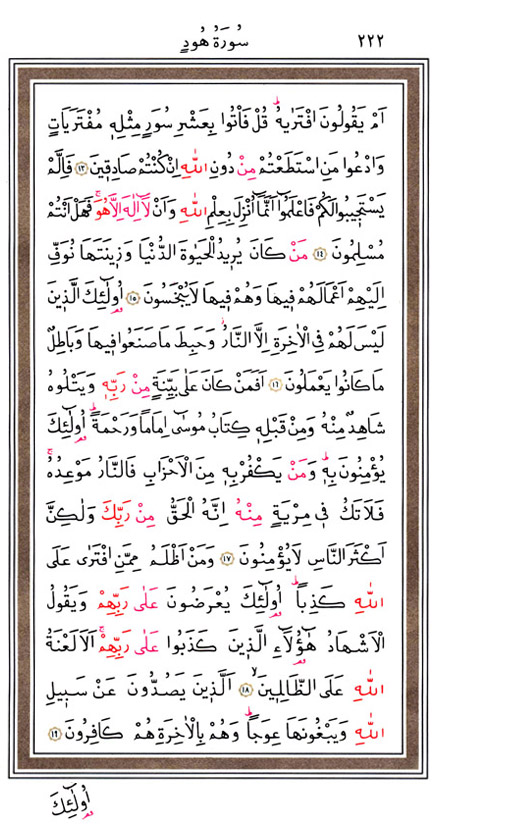 ٢٢٢
سُورَةُ هُودٍ
اَمْ يَقُولُونَ افْتَرٰيهُۜ قُلْ فَأْتُوا بِعَشْرِ سُوَرٍ مِثْلِه۪ مُفْتَرَيَاتٍ
وَادْعُوا مَنِ اسْتَطَعْتُمْ مِنْ دُونِ اللّٰهِ اِنْ كُنْتُمْ صَادِق۪ينَ ﴿١٣﴾ فَاِلَّمْ
يَسْتَج۪يبُوا لَكُمْ فَاعْلَمُٓوا اَنَّمَٓا اُنْزِلَ بِعِلْمِ اللّٰهِ وَاَنْ لَٓا اِلٰهَ اِلَّا هُوَۚ فَهَلْ اَنْتُمْ
مُسْلِمُونَ ﴿١٤﴾ مَنْ كَانَ يُر۪يدُ الْحَيٰوةَ الدُّنْيَا وَز۪ينَتَهَا نُوَفِّ
اِلَيْهِمْ اَعْمَالَهُمْ ف۪يهَا وَهُمْ ف۪يهَا لَا يُبْخَسُونَ ﴿١٥﴾ اُو۬لٰٓئِكَ الَّذ۪ينَ
لَيْسَ لَهُمْ فِي الْاٰخِرَةِ اِلَّا النَّارُۘ وَحَبِطَ مَا صَنَعُوا ف۪يهَا وَبَاطِلٌ
مَا كَانُوا يَعْمَلُونَ ﴿١٦﴾ اَفَمَنْ كَانَ عَلٰى بَيِّنَةٍ مِنْ رَبِّه۪ وَيَتْلُوهُ
شَاهِدٌ مِنْهُ وَمِنْ قَبْلِه۪ كِتَابُ مُوسٰٓى اِمَامًا وَرَحْمَةًۜ اُو۬لٰٓئِكَ
يُؤْمِنُونَ بِه۪ۜ وَمَنْ يَكْفُرْ بِه۪ مِنَ الْاَحْزَابِ فَالنَّارُ مَوْعِدُهُۚ
فَلَا تَكُ ف۪ي مِرْيَةٍ مِنْهُ اِنَّهُ الْحَقُّ مِنْ رَبِّكَ وَلٰكِنَّ
اَكْثَرَ النَّاسِ لَا يُؤْمِنُونَ ﴿١٧﴾ وَمَنْ اَظْلَمُ مِمَّنِ افْتَرٰى عَلَى
اللّٰهِ كَذِبًاۜ اُو۬لٰٓئِكَ يُعْرَضُونَ عَلٰى رَبِّهِمْ وَيَقُولُ
الْاَشْهَادُ هٰٓؤُ۬لَٓاءِ الَّذ۪ينَ كَذَبُوا عَلٰى رَبِّهِمْۚ اَلَا لَعْنَةُ
اللّٰهِ عَلَى الظَّالِم۪ينَۙ ﴿١٨﴾ اَلَّذ۪ينَ يَصُدُّونَ عَنْ سَب۪يلِ
اللّٰهِ وَيَبْغُونَهَا عِوَجًاۜ وَهُمْ بِالْاٰخِرَةِ هُمْ كَافِرُونَ ﴿١٩﴾
اُو۬لٰٓئِكَ